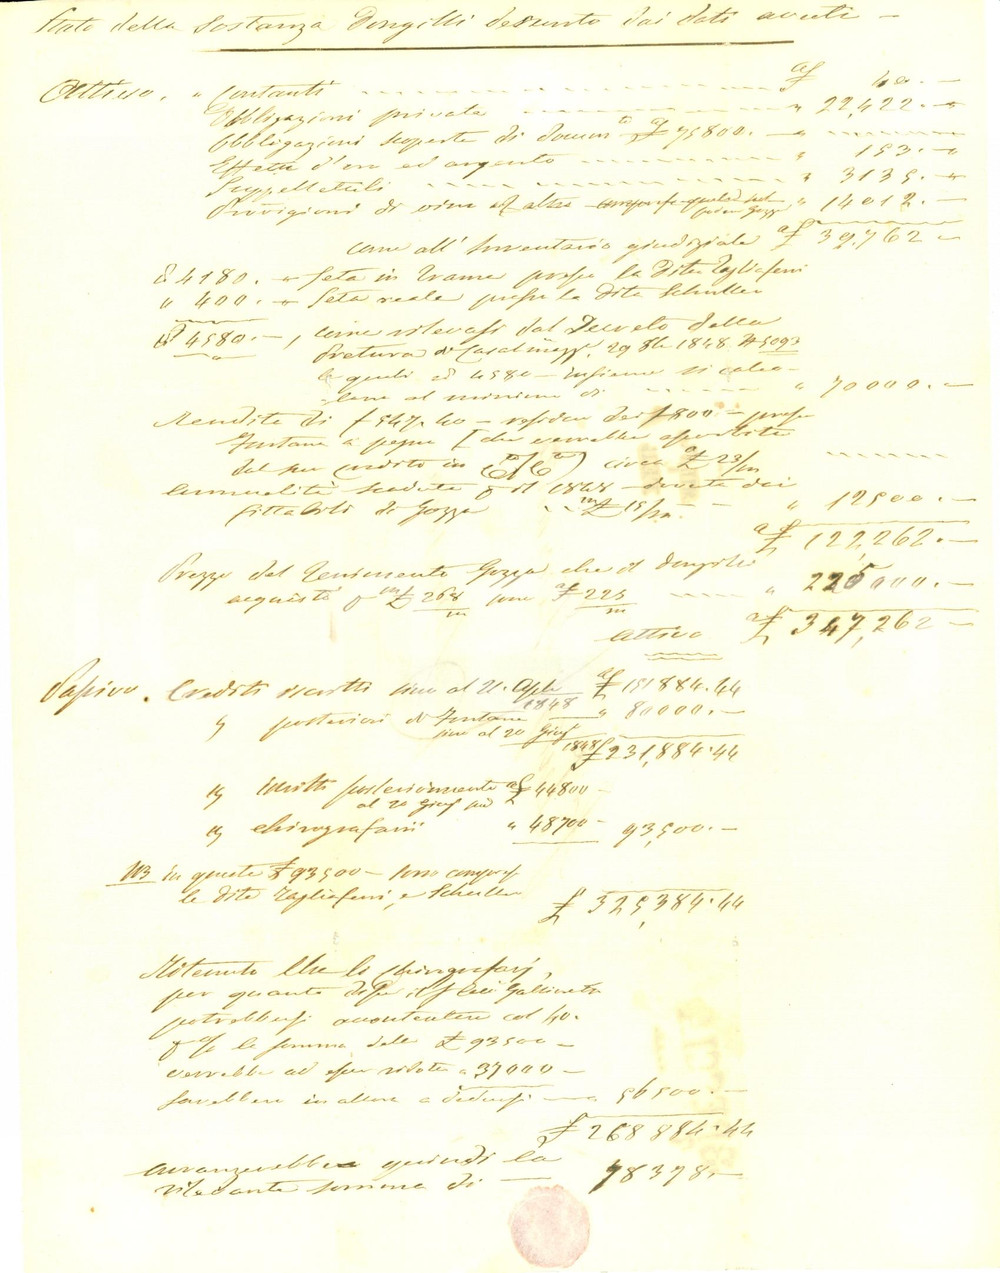 Stato della Sostanza Dongilli desunto dai dati avuti —
Attivo. " Contanti £ 40. —
Obbligazioni private " 22,422. —
Obbligazioni scoperte di docum.ti £ 75800. —
Effetti d'oro ed argento " 153. —
Suppellettili " 3135. —
Provigioni di vino ed altro " 14012. —
come all'Inventario giudiziale £ 39,762 —
4180. — Seta in trame presso la Ditta Tagliaferri
" 400. — Seta reale presso la Ditta Schuller
4580. —, come rilevasi dal Decreto della
Pretura di Casalmagg. 29 1848 N. 5093
le quali £ 4580 — insieme si calco-
lano al minimo di " 70000. —
Rendite di f 547. 40 — residuo dei f 800 — presso
Fontana a pegno che verrebbe
del suo Credito in circa £ 23/m
Annualità scaduta il 1848 — dovuta dai
fittabili di Gozza £ 15/m. " 12500. —
£ 122,262. —
Prezzo del Tenimento Gozza che il Dongilli
acquistò £ 268/m sono £ 225/m " 225000. —
Attivo £ 347,262 —
Passivo. Crediti iscritti sino al 21. Aple 1848 £ 151884.44
" posteriori di Fontana " 80000. —
sino al 20 Giug° 1848 £ 231,884.44
" Iscritti posteriormente £ 44800 —
al 20 Giug°
" chirografarii " 48700 — 93,500. —
NB in queste £ 93500 — sono compres
le Ditte Tagliaferri, e Schuller
£ 325,384.44
Ritenuto che li chirografarj,
per quanto disse il
potrebbersi accontentare col 40.
p % la somma delle £ 93500 —
verrebbe ad esser ridotta a 37000 —
sarebbero in allora a dedursi — 56500. —
£ 268 884.44
avanzerebbe quindi la
rilevante somma di — 78378. —